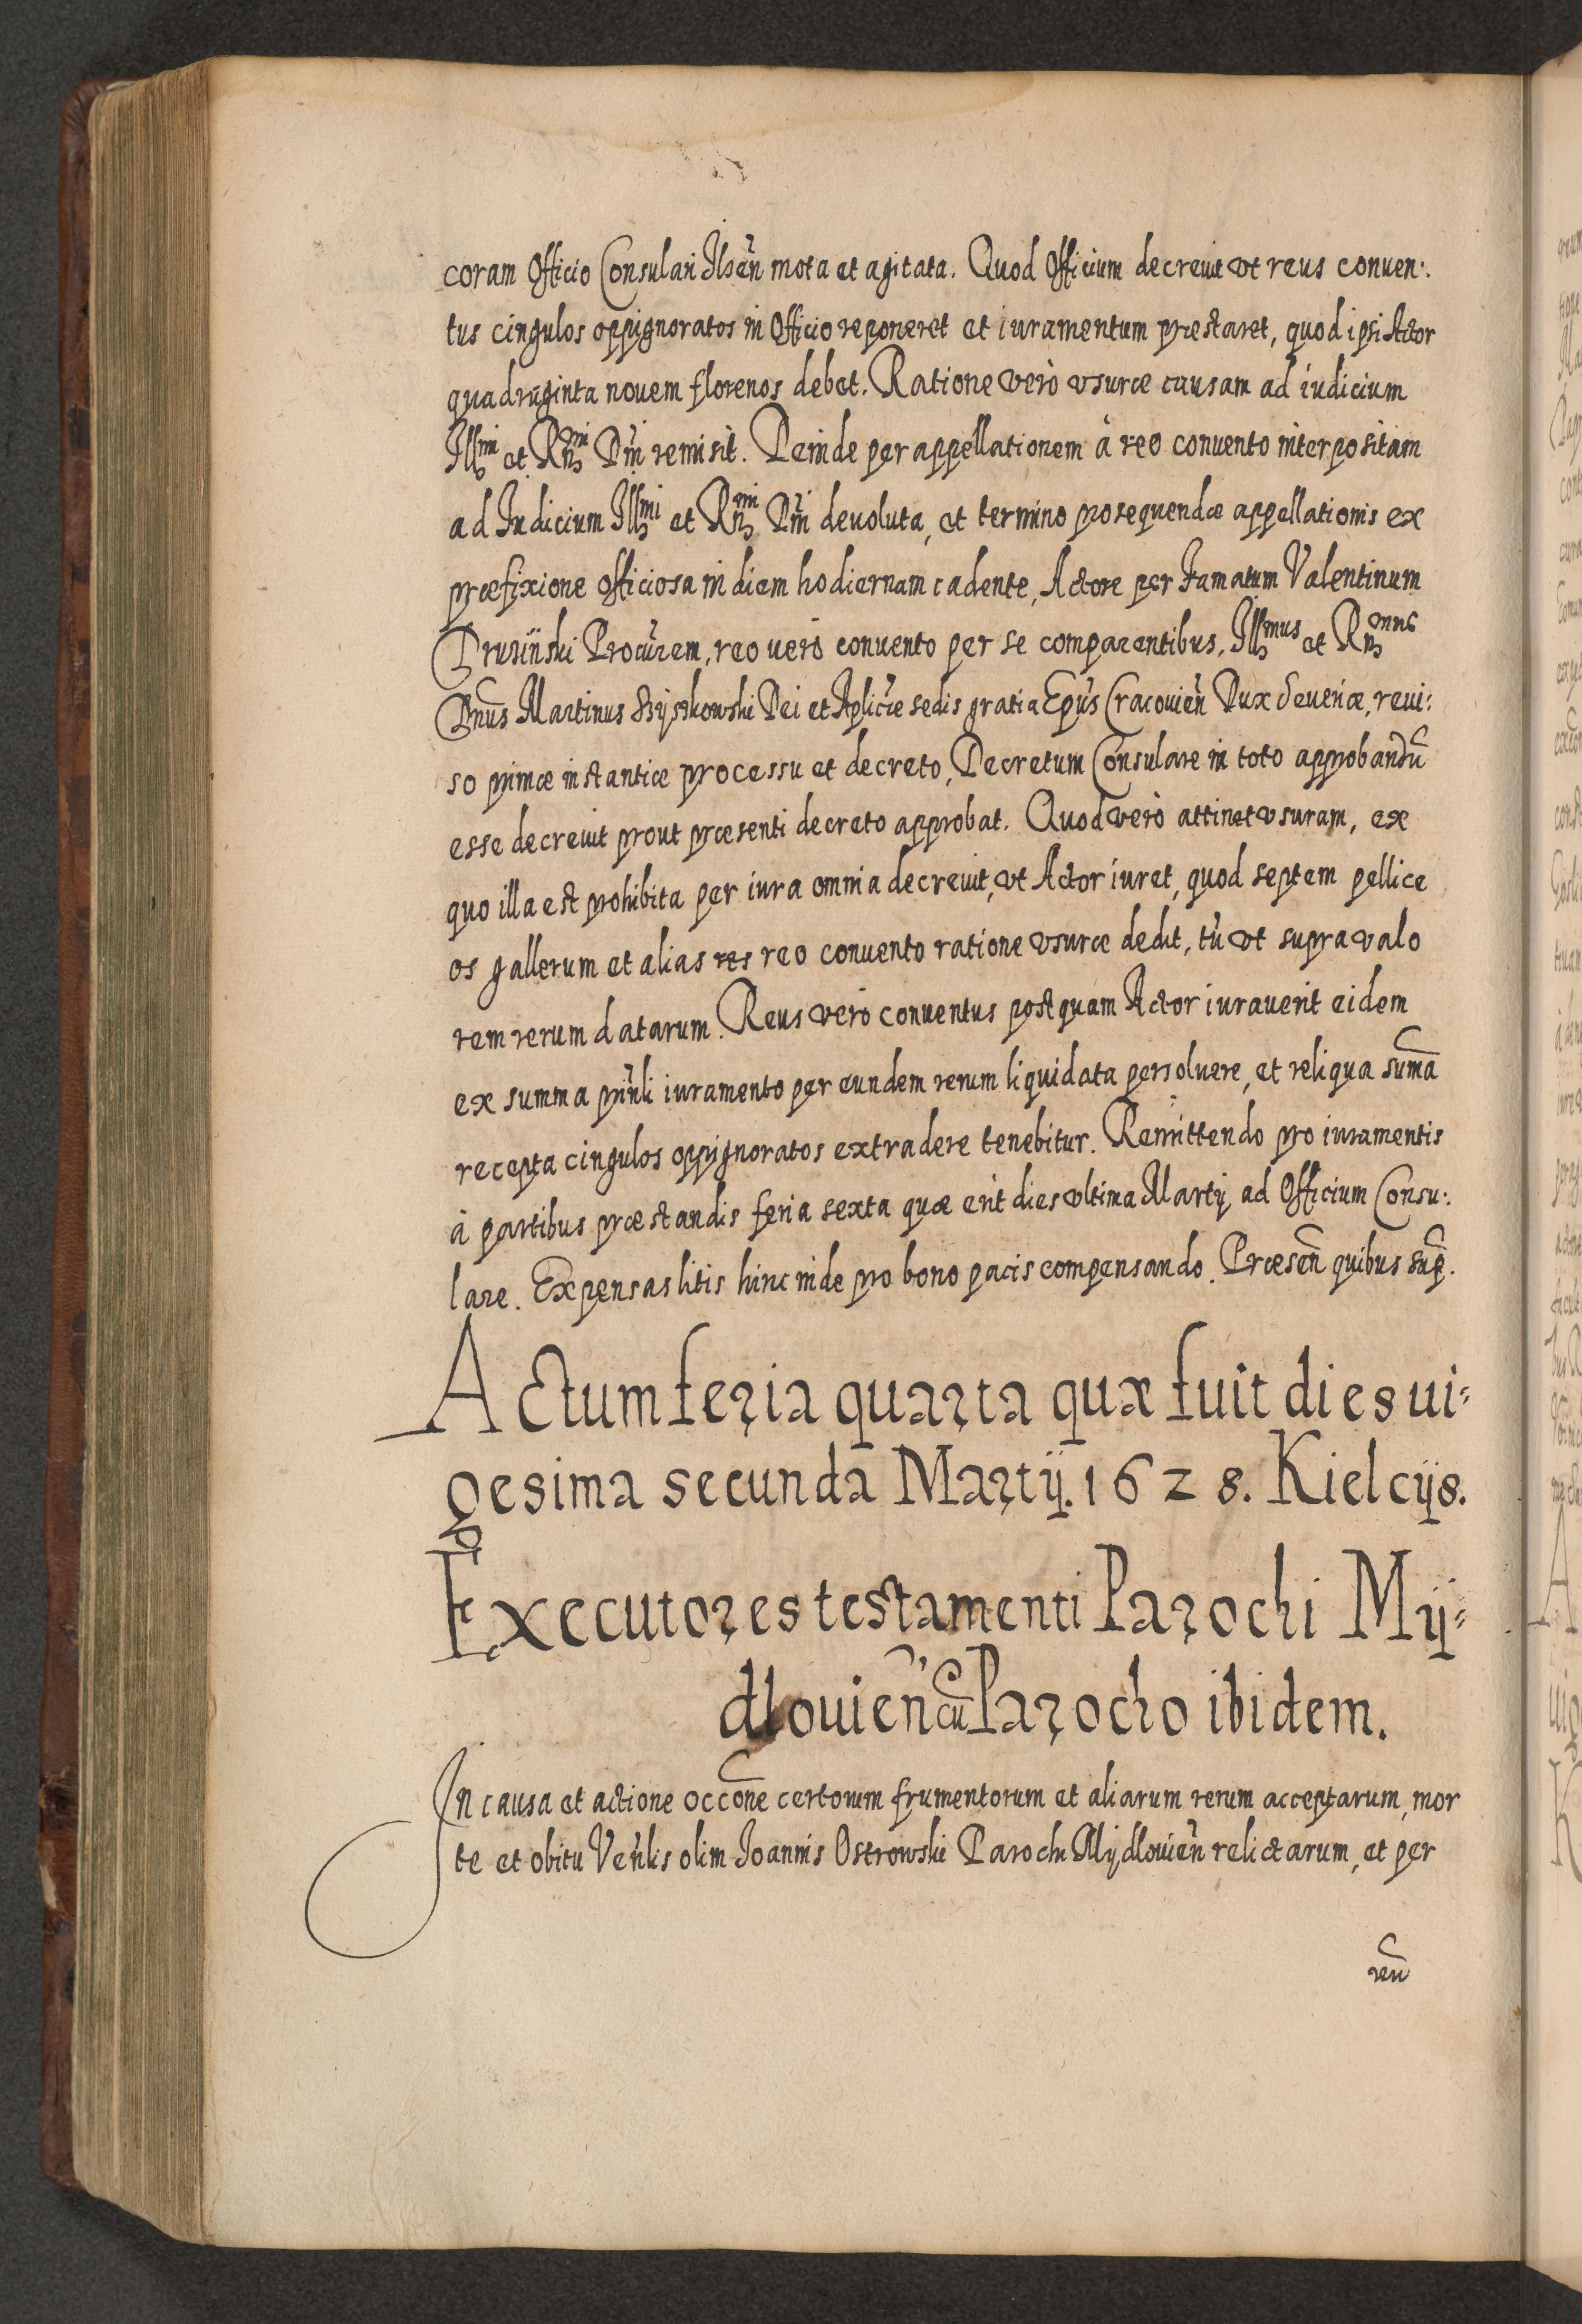 coram Officio Consulari Ilsēn mota et agitata. Quod Officium decreuit vt reus conuen:.
tus cingulos oppignoratos in Officio reponeret et iuramentum præstaret, quod ipsi Actor
quadraginta nouem florenos debet. Ratione verò vsuræ causam ad iudicium
Illmi et Rmi Dni remisit. Deinde per appellationem à reo conuento interpositam
ad Iudicium Illmi et Rmi Dni deuoluta, et termino prosequendæ appellationis ex
præfixione officiosa in diem hodiernam cadente, Actore per Famatum Valentinum
Drusiński Procūrem, reo uerò conuento per se comparentibus, Illmus et Rmus
Dnūs Martinus Szyszkowski Dei et Aplicæ sedis gratia Epūs Cracouiēn Dux Seueriæ, reui:
so primæ instantiæ processu et decreto, Decretum Consulare in toto approbandū
esse decreuit prout præsenti decreto approbat. Quod verò attinet vsuram, ex
quo illa est prohibita per iura omnia decreuit, vt Actor iuret, quod septem pellice
os gallerum et alias res reo conuento ratione vsuræ dedit, tū vt supra valo
rem rerum datarum. Reus verò conuentus postquam Actor iurauerit eidem
ex summa prīnli iuramento per eundem rerum liquidata persoluere, et reliqua sumā
recepta cingulos oppignoratos extradere tenebitur. Remittendo pro iuramentis
à partibus præstandis feria sexta quæ erit dies vltima Martij, ad Officium Consu:.
lare. Expensas litis hinc inde pro bono pacis compensando. Præsēn quibus sup̄.
Actum feria quarta quæ fuit dies ui=
gesima secunda Martij. 1628. Kielcijs.
Executores testamenti Parochi Mÿ=
dlouiēn cū Parocho ibidem.
In causa et actione occōne certorum frumentorum et aliarum rerum acceptarum, mor
te et obitu Venlis olim Joannis Ostrowski Parochi Mÿdlouiēn relictarum, et per
reū